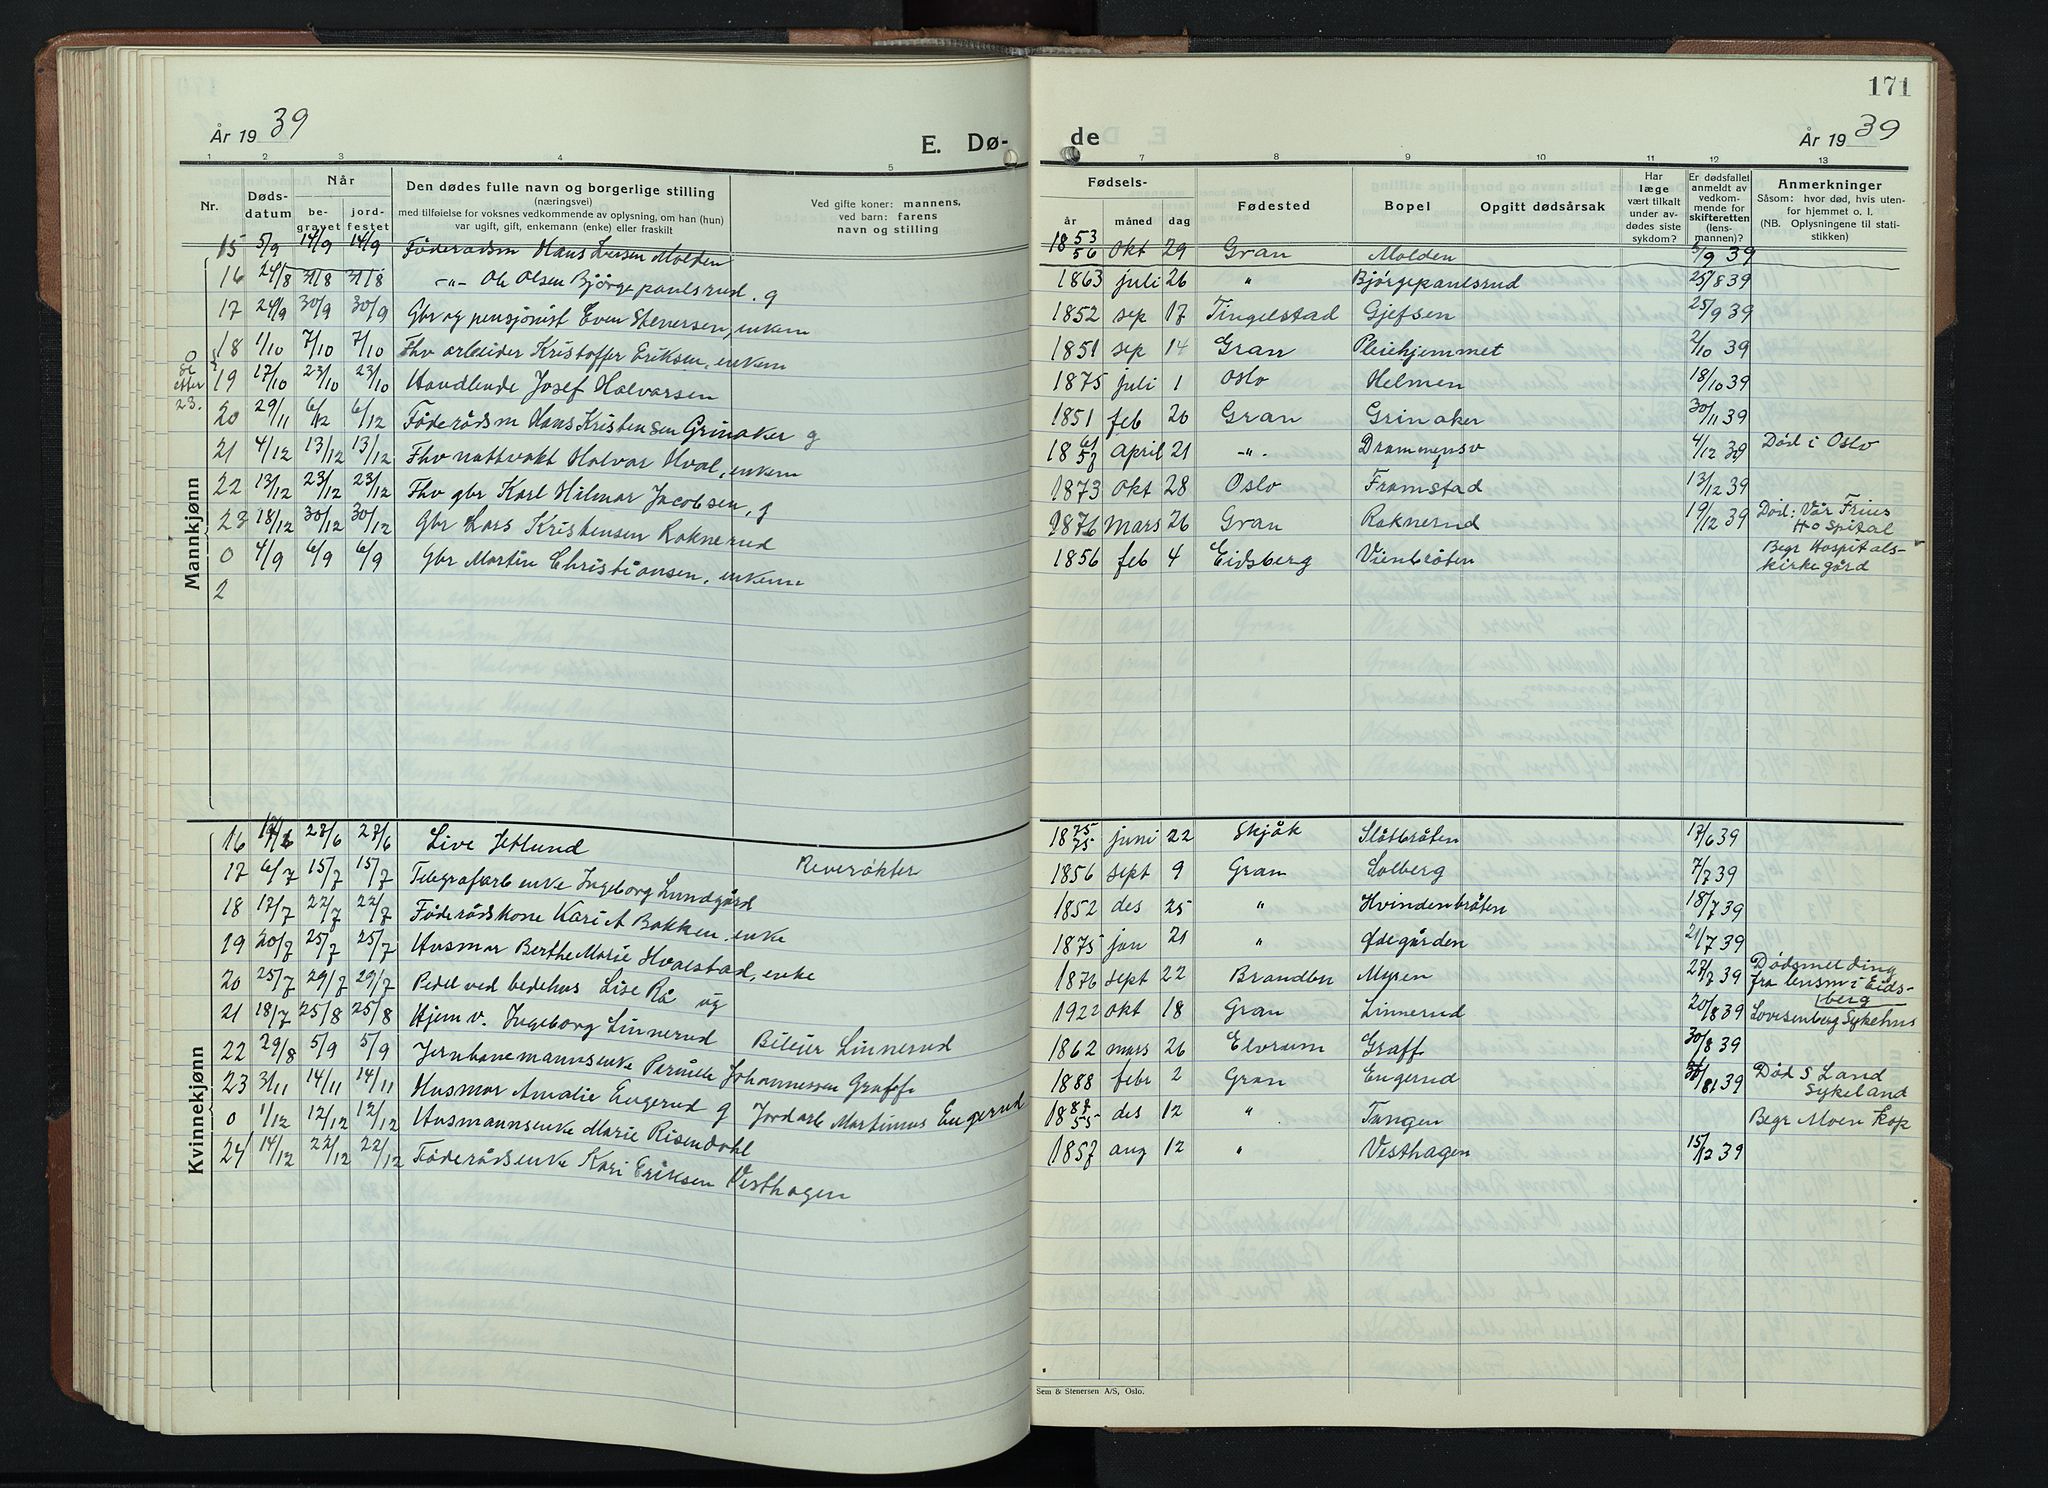 171
År 1939
E. Dø-
de
År 1939
1 2 3 4 5 7 8 9 10 11 12 13
Nr.
Døds-
datum
Når
be-
gravet
jord-
festet
Den dødes fulle navn og borgerlige stilling
(næringsvei)
med tilføielse for voksnes vedkommende av oplysning, om han (hun)
var ugift, gift, enkemann (enke) eller fraskilt
Ved gifte koner: mannens,
ved barn: farens
navn og stilling
Fødsels-
år måned dag
Fødested
Bopel
Opgitt dødsårsak
Har
læge
vært tilkalt
under av-
dødes siste
sykdom?
Er dødsfallet
anmeldt av
vedkom-
mende for
skifteretten
(lens-
mannen)?
Anmerkninger
Såsom: hvor død, hvis uten-
for hjemmet o. l.
(NB. Oplysningene til stati-
stikken)
Mannkjønn
15 5/9 14/9 14/9 Føderådsm Hans Larsen Molden 1853 56 okt 29 Gran Molden 5/9 39
16 24/8 31/8 31/8 -"- Ole Olsen Bjørgepaulsrud. g 1863 juli 26 " Bjørgepaulsrud 25/8 39
17 24/9 30/9 30/9 Gbr og pensjonist Even Stenersen, enkem 1852 sep 17 Tingelstad Gjefsen 25/9 39
18 1/10 7/10 7/10 Fhv arbeider Kristoffer Eriksen, enkem 1851 sep 14 Gran Pleiehjemmet 2/10 39
0 se etter 23.
19 17/10 23/10 23/10 Handlende Josef Halvorsen 1875 juli 1 Oslo Helmen 18/10 39
20 29/11 6/12 6/12 Føderådsm Hans Kristensen Grinaker g 1851 feb 20 Gran Grinaker 30/11 39
21 4/12 13/12 13/12 Fhv nattvakt Halvor Hval, enkem 1861 58 april 21 -"- Drammensv 4/12 39 Død i Oslo
22 13/12 23/12 23/12 Fhv gbr Karl Hilmar Jacobsen, g 1873 okt 28 Oslo Framstad 13/12 39
23 18/12 30/12 30/12 Gbr Lars Kristensen Raknerud 1876 mars 26 Gran Raknerud 19/12 39 Død: Vår Frues
Hospital
0 4/9 6/9 6/9 Gbr Martin Christiansen, enkem 1856 feb 4 Eidsberg Vienbråten Begr Hospitals-
kirkegård
2
Kvinnekjønn
16 23/6 27/6 Live Jetlund Reverøkter 1875 75 juni 22 Skjåk Slåtbråten 17/6 39
17 6/7 15/7 15/7 Telegrafarb enke Ingeborg Lundgård 1856 sept 9 Gran Solberg 7/7 39
18 17/7 22/7 22/7 Føderådskone Kari A Bakken, enke 1852 des 25 " Hvindenbråten 18/7 39
19 20/7 25/7 25/7 Husmor Berthe Marie Hvalstad, enke 1875 jan 21 " Ødegården 21/7 39
20 25/7 29/7 29/7 Pedel ved bedehus Lise Rå ug 1876 sept 22 Brandbu Myren 27/7 39 Dødsmelding
fra lensm i Eids-
berg
21 18/7 25/8 25/8 Hjemv. Ingeborg Linnerud Bileier Linnerud 1922 okt 18 Gran Linnerud 20/8 39 Lovisenberg Sykehus
22 29/8 5/9 5/9 Jernbanemannsenke Pernille Johannessen Graffe 1862 mars 26 Elvrum Graff 30/8 39
23 3/11 14/11 14/11 Husmor Amalie Engerud g Jordarb Martinus Engerud 1888 febr 2 Gran Engerud 39 Død S Land
Sykeland
0 1/12 12/12 12/12 Husmannsenke Marie Risendahl 55 des 12 " Tangen Begr Moen Kap
24 14/12 22/12 22/12 Føderådsenke Kari Eriksen Vesthagen 1857 aug 12 " Vesthagen 15/12 39
Sem & Stenersen A/S, Oslo.